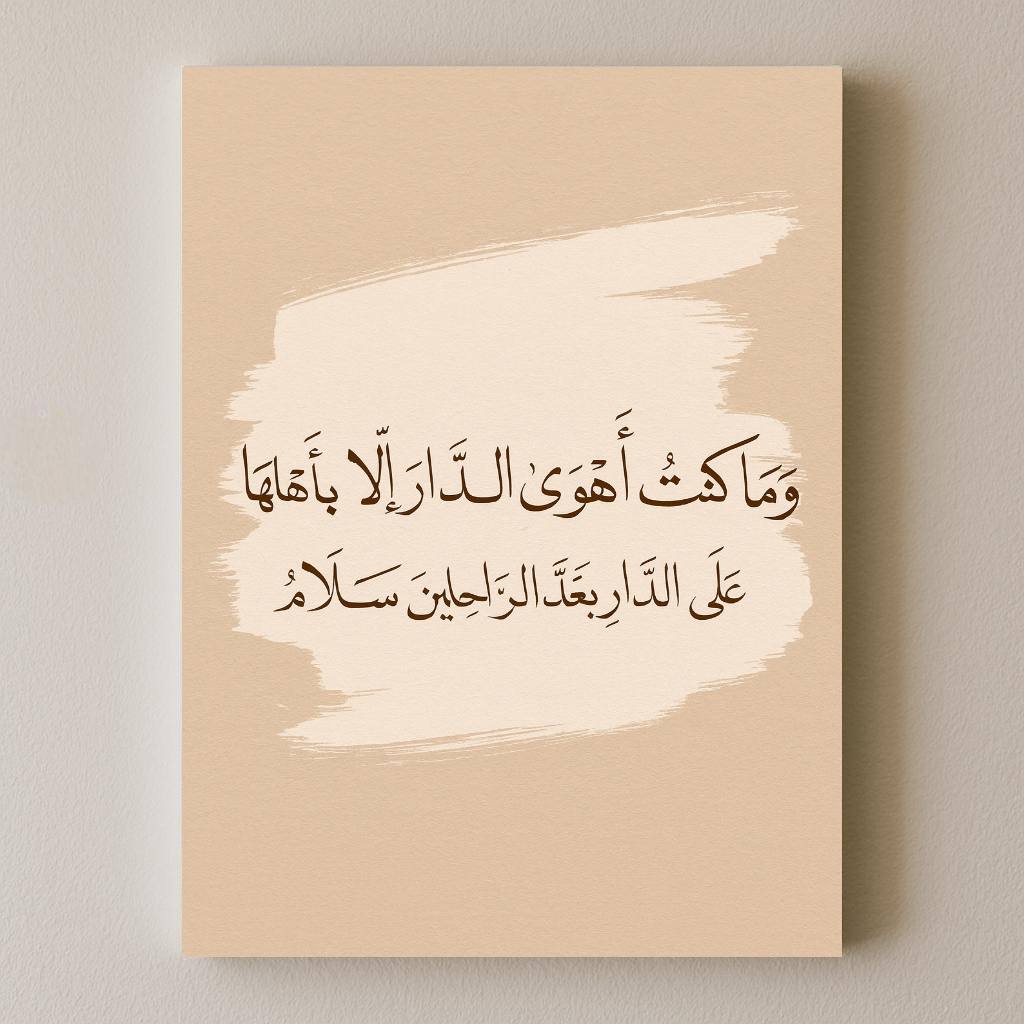 وَمَا كنتُ أَهْوَىٰ الـدَّارَ إِلَّا بأَهْلهَا
عَلَى الدَّارِ بَعَدَّ الرَّاحِلينَ سَـلَامُ